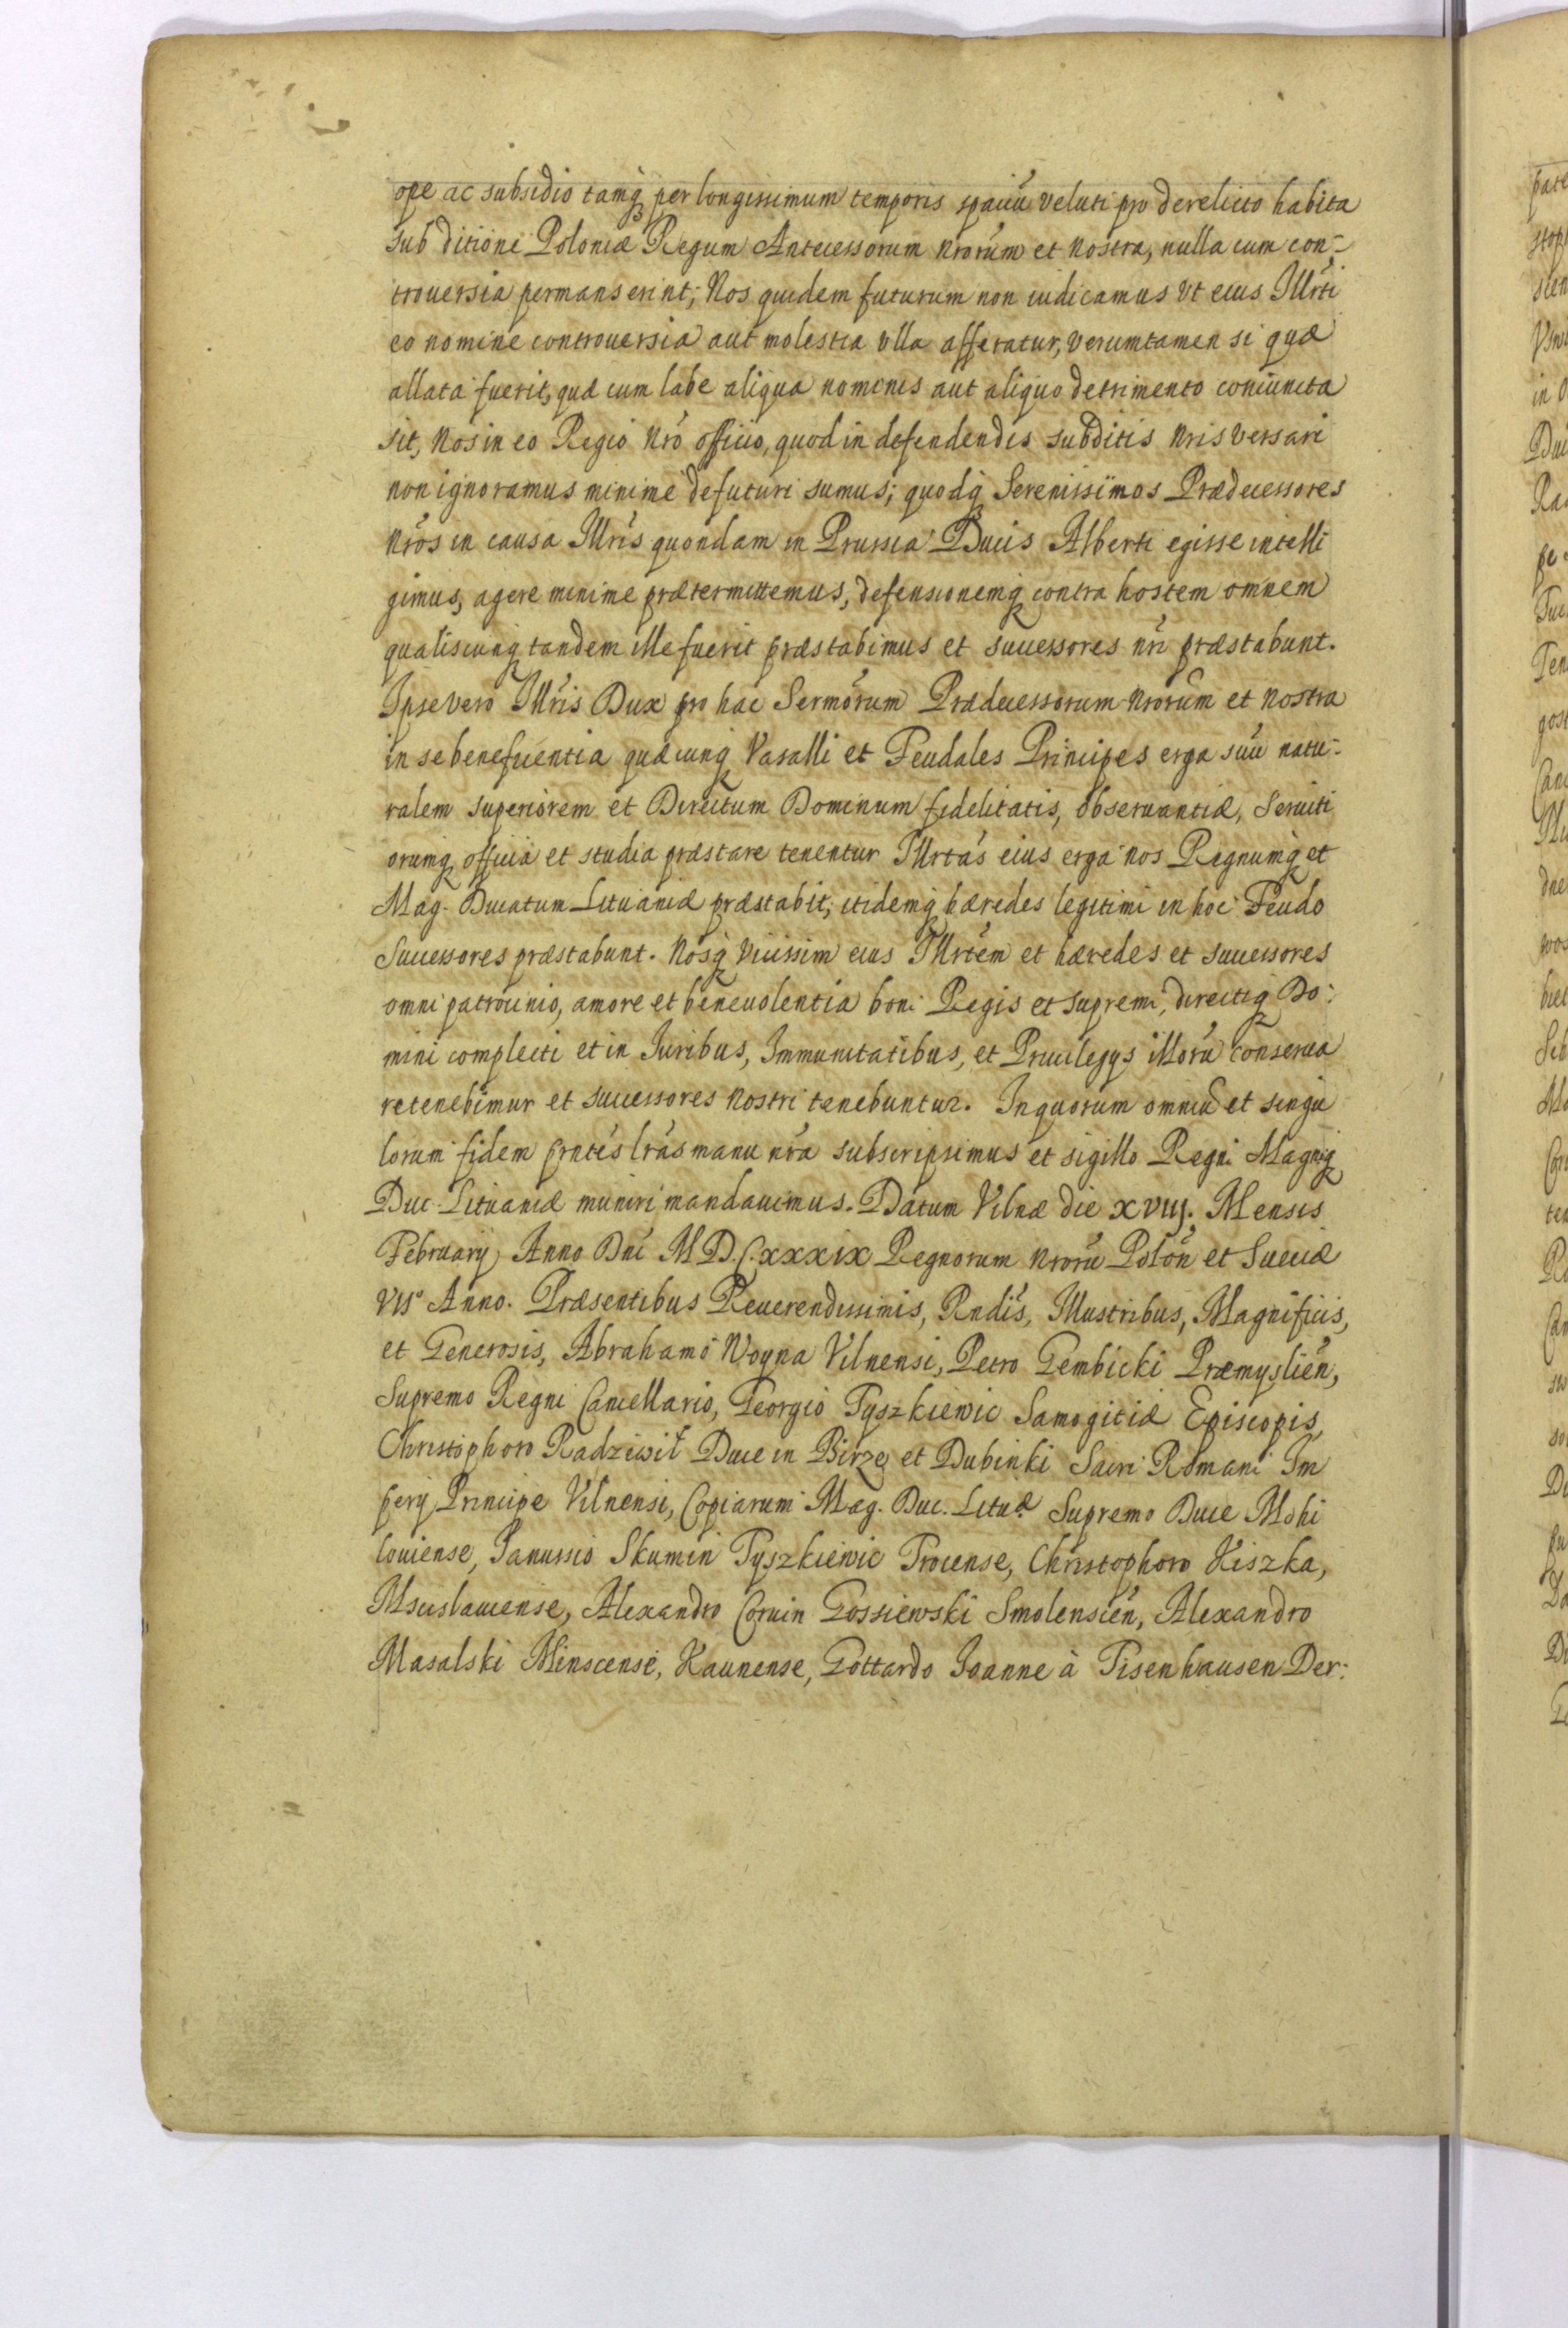 ope ac subsidio tamq₃ per longissimum temporis spaciū veluti pro derelicto habita
sub ditione Poloniæ Regum Antecessorum nrorūm et nostra, nulla cum con-
trouersia permanserint; Nos quidem futurum non iudicamus vt eius Illrti
eo nomine controuersia aut molestia vlla afferatur, verumtamen si quæ
allata fuerit, quæ cum labe aliqua nominis aut aliquo detrimento coniuncta
sit, Nos in eo Regio nrō officio, quod in defendendis subditis nris versari
non ignoramus minime defuturi sumus; quodq₃ Serenissimos Prædecessores
nrōs in causa Illrīs quondam in Prussia Ducis Alberti egisse intelli
gimus, agere minime prætermittemus, defensionemq₃ contra hostem omnem
qualiscunq₃ tandem ille fuerit præstabimus et successores nri præstabunt.
Ipse vero Illrīs Dux pro hac Sermōrum Prædecessorum nrorūm et nostra
in se beneficentia quæcunq₃ Vasalli et Feudales Principes erga suū natu-
ralem superiorem et Directum Dominum fidelitatis, obseruantiæ, Seruiti
orumq₃ officia et studia præstare tenentur Illrtās eius erga nos Regnumq₃ et
Mag. Ducatum Lituaniæ præstabit, itidemq₃ hæredes legitimi in hoc Feudo
Successores præstabunt. Nosq₃ vicissim eius Illrtēm et hæredes et successores
omni patrocinio, amore et beneuolentia boni Regis et supremi, directiq₃ Do-
mini complecti et in Iuribus, Immunitatibus, et Priuilegys illorū conserua
re tenebimur et successores nostri tenebuntur. In quorum omniū et singu
lorum fidem prntēs lrās manu nrā subscripsimus et sigillo Regni Magniq₃
Duc. Lituaniæ muniri mandauimus. Datum Vilnæ die xviij. Mensis
February Anno Dnī M D. C. xxxix Regnorum nrorū Polōn et Sueciæ
viiº Anno. Præsentibus Reuerendissimis, Rndīs, Illustribus, Magnificis,
et Generosis, Abrahamo Woyna Vilnensi, Petro Gembicki Præmysliēn,
Supremo Regni Cancellario, Georgio Tyszkiewic Samogitiæ Episcopis,
Christophoro Radziwił Duce in Birze et Dubinki Sacri Romani Im
pery Principe Vilnensi, Copiarum Mag. Duc. Lituæ Supremo Duce Mohi
louiense, Janussio Skumin Tyszkiewic Trocense, Christophoro Kiszka,
Mscislauiense, Alexandro Coruin Gossiewski Smolensciēn, Alexandro
Masalski Minscense, Kaunense, Gottardo Joanne à Tisenhausen Der-